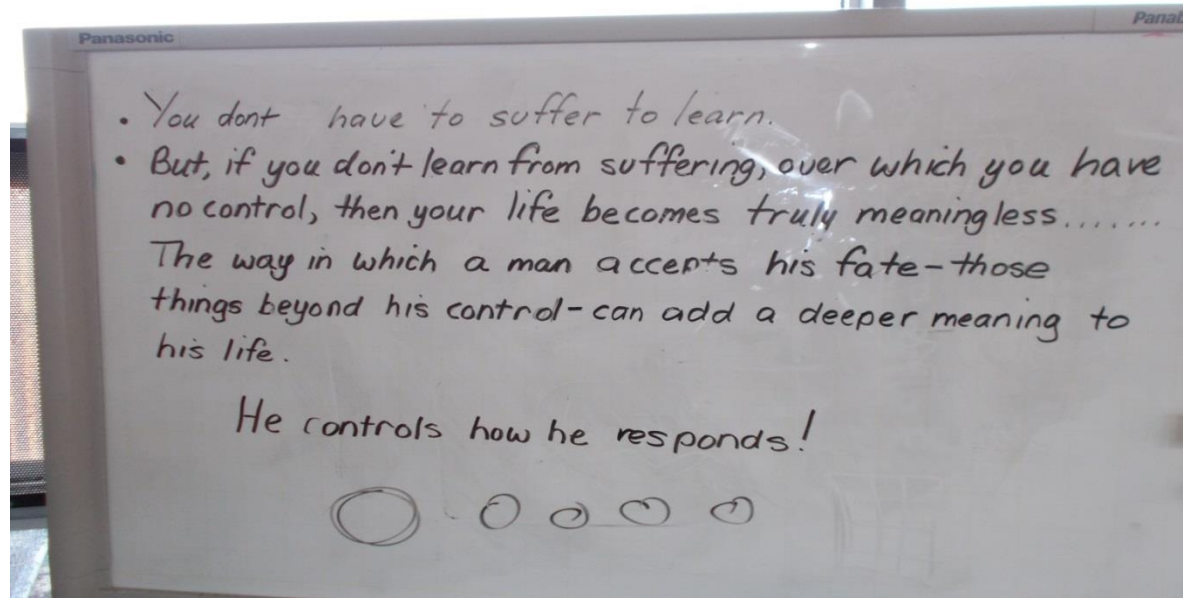 Panasonic
Panab
• You dont have to suffer to learn.
• But, if you don't learn from suffering, over which you have
no control, then your life becomes truly meaningless.......
The way in which a man accepts his fate-those
things beyond his control-can add a deeper meaning to
his life.
He controls how he responds!